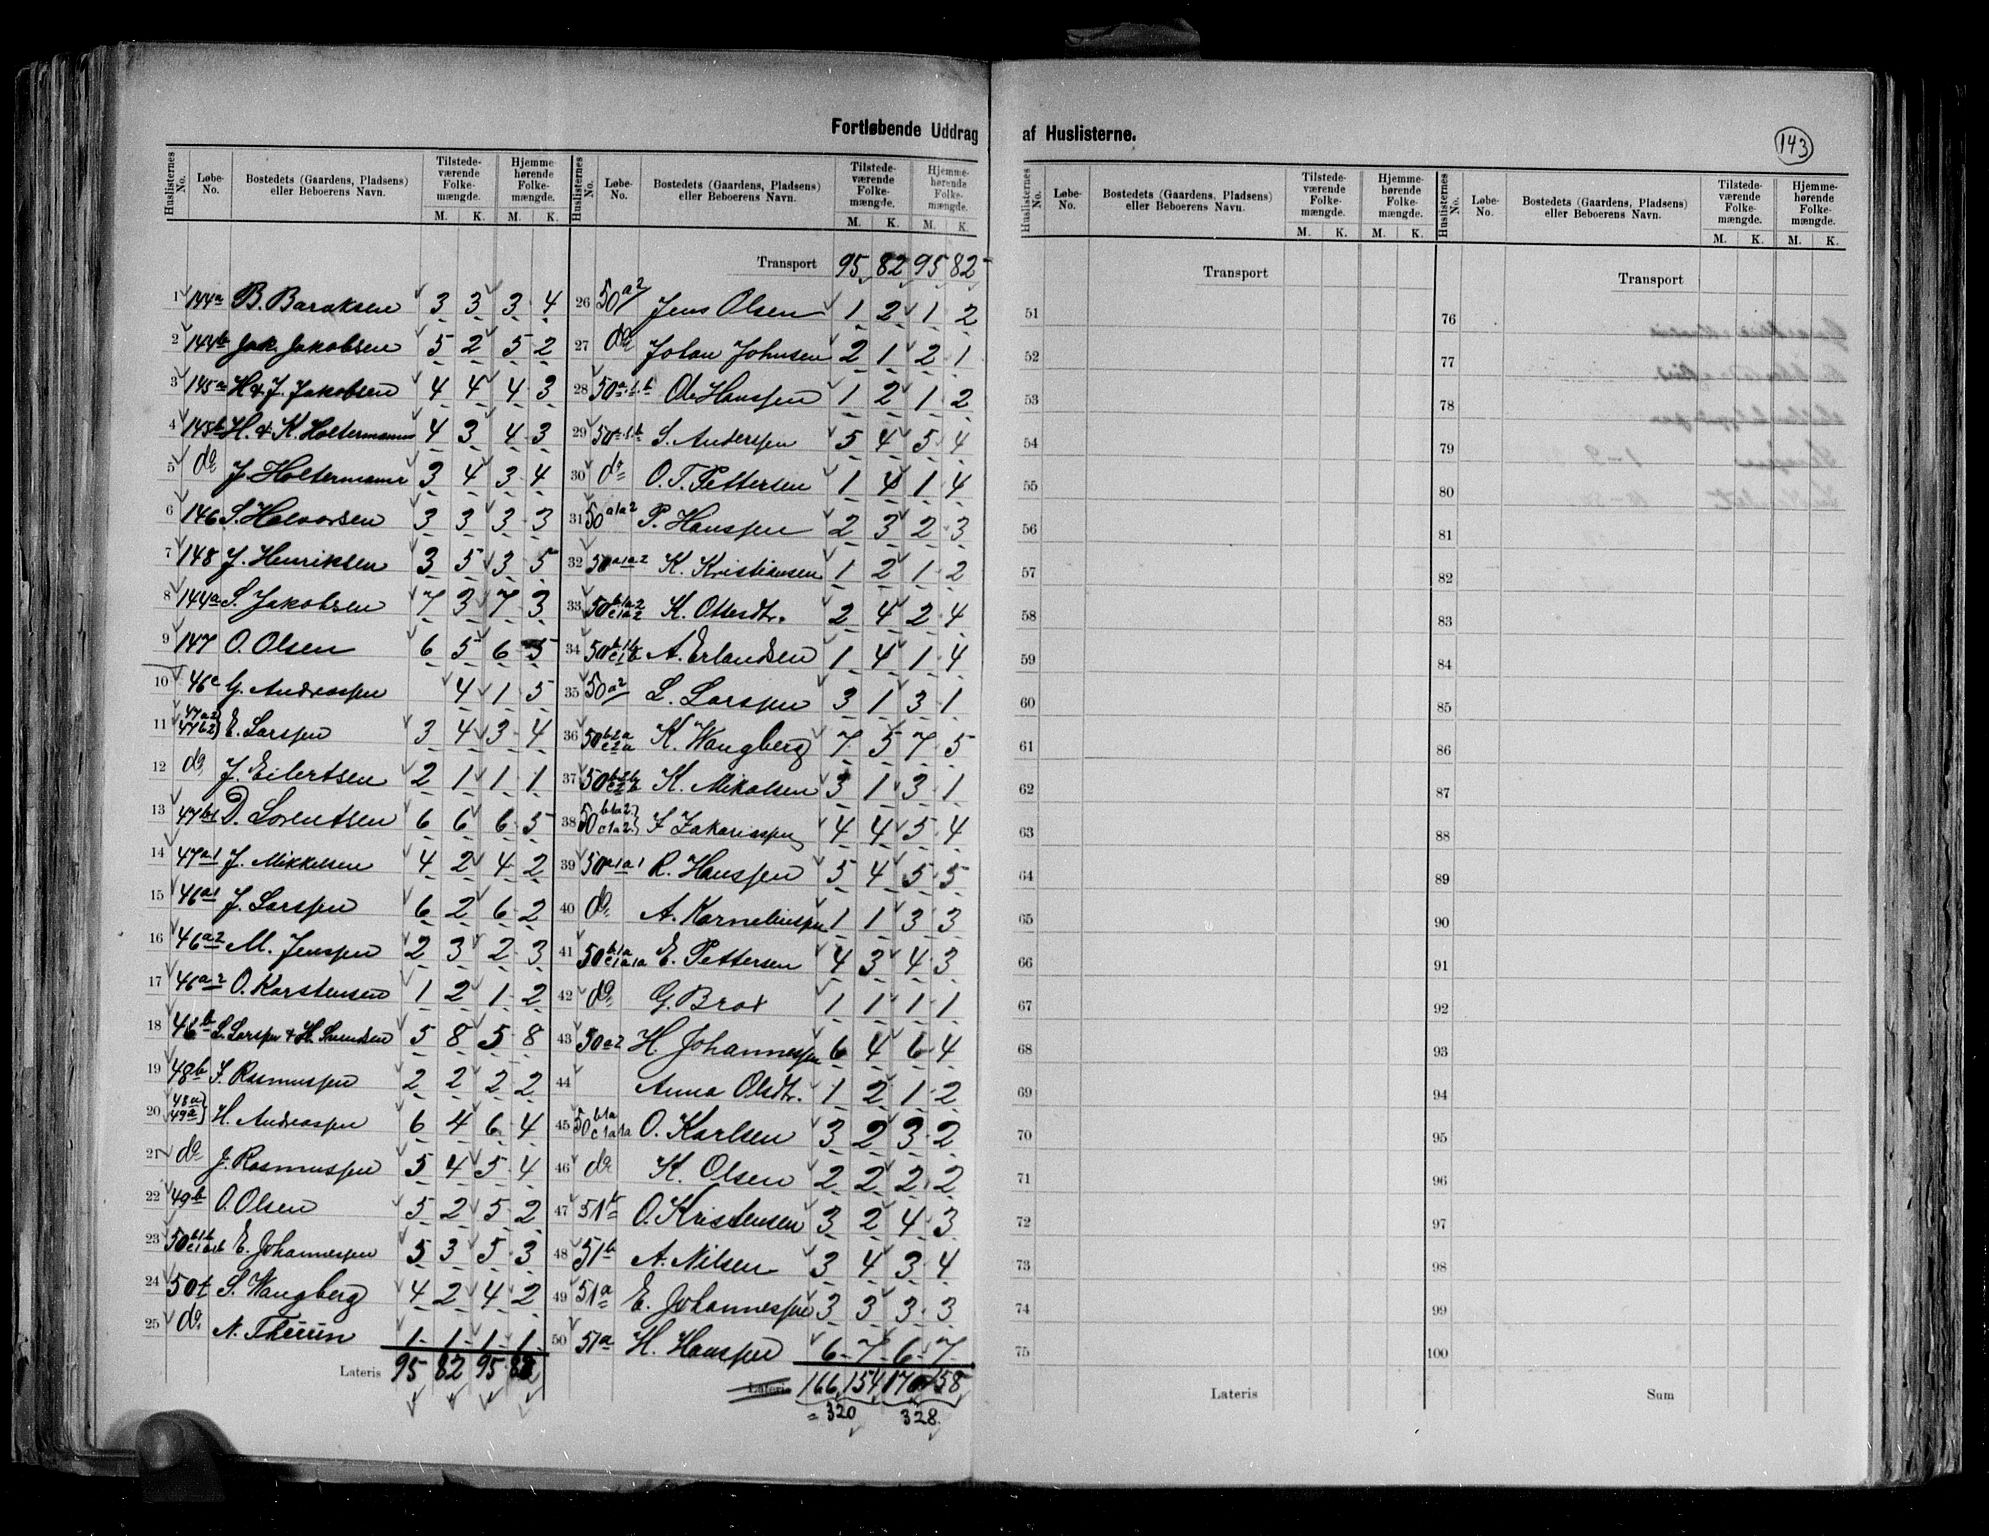 Fortløbende Uddrag af Huslisterne.
143
Huslisternes No. Løbe-No. Bostedets (Gaardens, Pladsens) eller Beboerens Navn. Tilstedeværende Folkemængde. M. K. Hjemmehørende Folkemængde. M. K.
1 144a B. Baraksen 3 3 3 4
2 144b Jak. Jakobsen 5 2 5 2
3 145a H & J. Jakobsen 4 4 4 3
4 145b H. & K. Holtermann 4 3 4 3
5 do J. Holtermann 3 4 3 4
6 146 S. Halvorsen 3 3 3 3
7 148 J. Henriksen 3 5 3 5
8 144a S. Jakobsen 7 3 7 3
9 147 O. Olsen 6 5 6 5
10 46c G. Andreassen 4 1 5
11 47a2 47b2 E. Larssen 3 4 3 4
12 do J. Eilertsen 2 1 1 1
13 47b1 D. Lorentsen 6 6 6 5
14 47a1 J. Mikkelsen 4 2 4 2
15 46a1 J. Larssen 6 2 6 2
16 46a2 M. Jenssen 2 3 2 3
17 46a2 O. Karstensen 1 2 1 2
18 46b L. Larssen & H. Svendsen 5 8 5 8
19 48b S. Rasmussen 2 2 2 2
20 48a 49a H. Andreassen 6 4 6 4
21 do J. Rasmussen 5 4 5 4
22 49b O. Olsen 5 2 5 2
23 50b1b E. Johannessen 5 3 5 3
24 50t S. Wangberg 4 2 4 2
25 do N. 1 1 1 1
Lateris 95 82 95 82
Huslisternes No. Løbe-No. Bostedets (Gaardens, Pladsens) eller Beboerens Navn. Tilstedeværende Folkemængde. M. K. Hjemmehørende Folkemængde. M. K.
Transport 95 82 95 82
26 50a2 Jens Olsen 1 2 1 2
27 do Johan Johnsen 2 1 2 1
28 50a1b Ole Hanssen 1 2 1 2
29 50a1b S. Anderssen 5 4 5 4
30 do O. T. Pettersen 1 4 1 4
31 50a1a2 P. Hanssen 2 3 2 3
32 50a1a2 K. Kristiansen 1 2 1 2
33 50b1a2 c1a2 K. Olesdtr. 2 4 2 4
34 50b1b c1b A. Erlandsen 1 4 1 4
35 50a2 L. Larssen 3 1 3 1
36 50b2a c2a K. Wangberg 7 5 7 5
37 50b2b c2b K. Mikalsen 3 1 3 1
38 50b1a2 c1a2 F Zakariassen 4 4 5 4
39 50a1a1 R. Hanssen 5 4 5 5
40 do A. Korneliussen 1 1 3 3
41 50b1a c1a1a E. Pettersen 4 3 4 3
42 do G. Brox 1 1 1 1
43 50a2 H. Johannessen 6 4 6 4
44 Anna Olsdtr. 1 2 1 2
45 50b1a c1a1a O. Karlsen 3 2 3 2
46 do K. Olsen 2 2 2 2
47 51b O. Kristensen 3 2 4 3
48 51b A. Nilsen 3 4 3 4
49 51a E. Johannessen 3 3 3 3
50 51a H. Hanssen 6 7 6 7
Lateris 166 154 170 158
= 320 328
Huslisternes No. Løbe-No. Bostedets (Gaardens, Pladsens) eller Beboerens Navn. Tilstedeværende Folkemængde. M. K. Hjemmehørende Folkemængde. M. K.
Transport
51
52
53
54
55
56
57
58
59
60
61
62
63
64
65
66
67
68
69
70
71
72
73
74
75
Lateris
Huslisternes No. Løbe-No. Bostedets (Gaardens, Pladsens) eller Beboerens Navn. Tilstedeværende Folkemængde. M. K. Hjemmehørende Folkemængde. M. K.
Transport
76
77
78
79
80
81
82
83
84
85
86
87
88
89
90
91
92
93
94
95
96
97
98
99
100
Sum